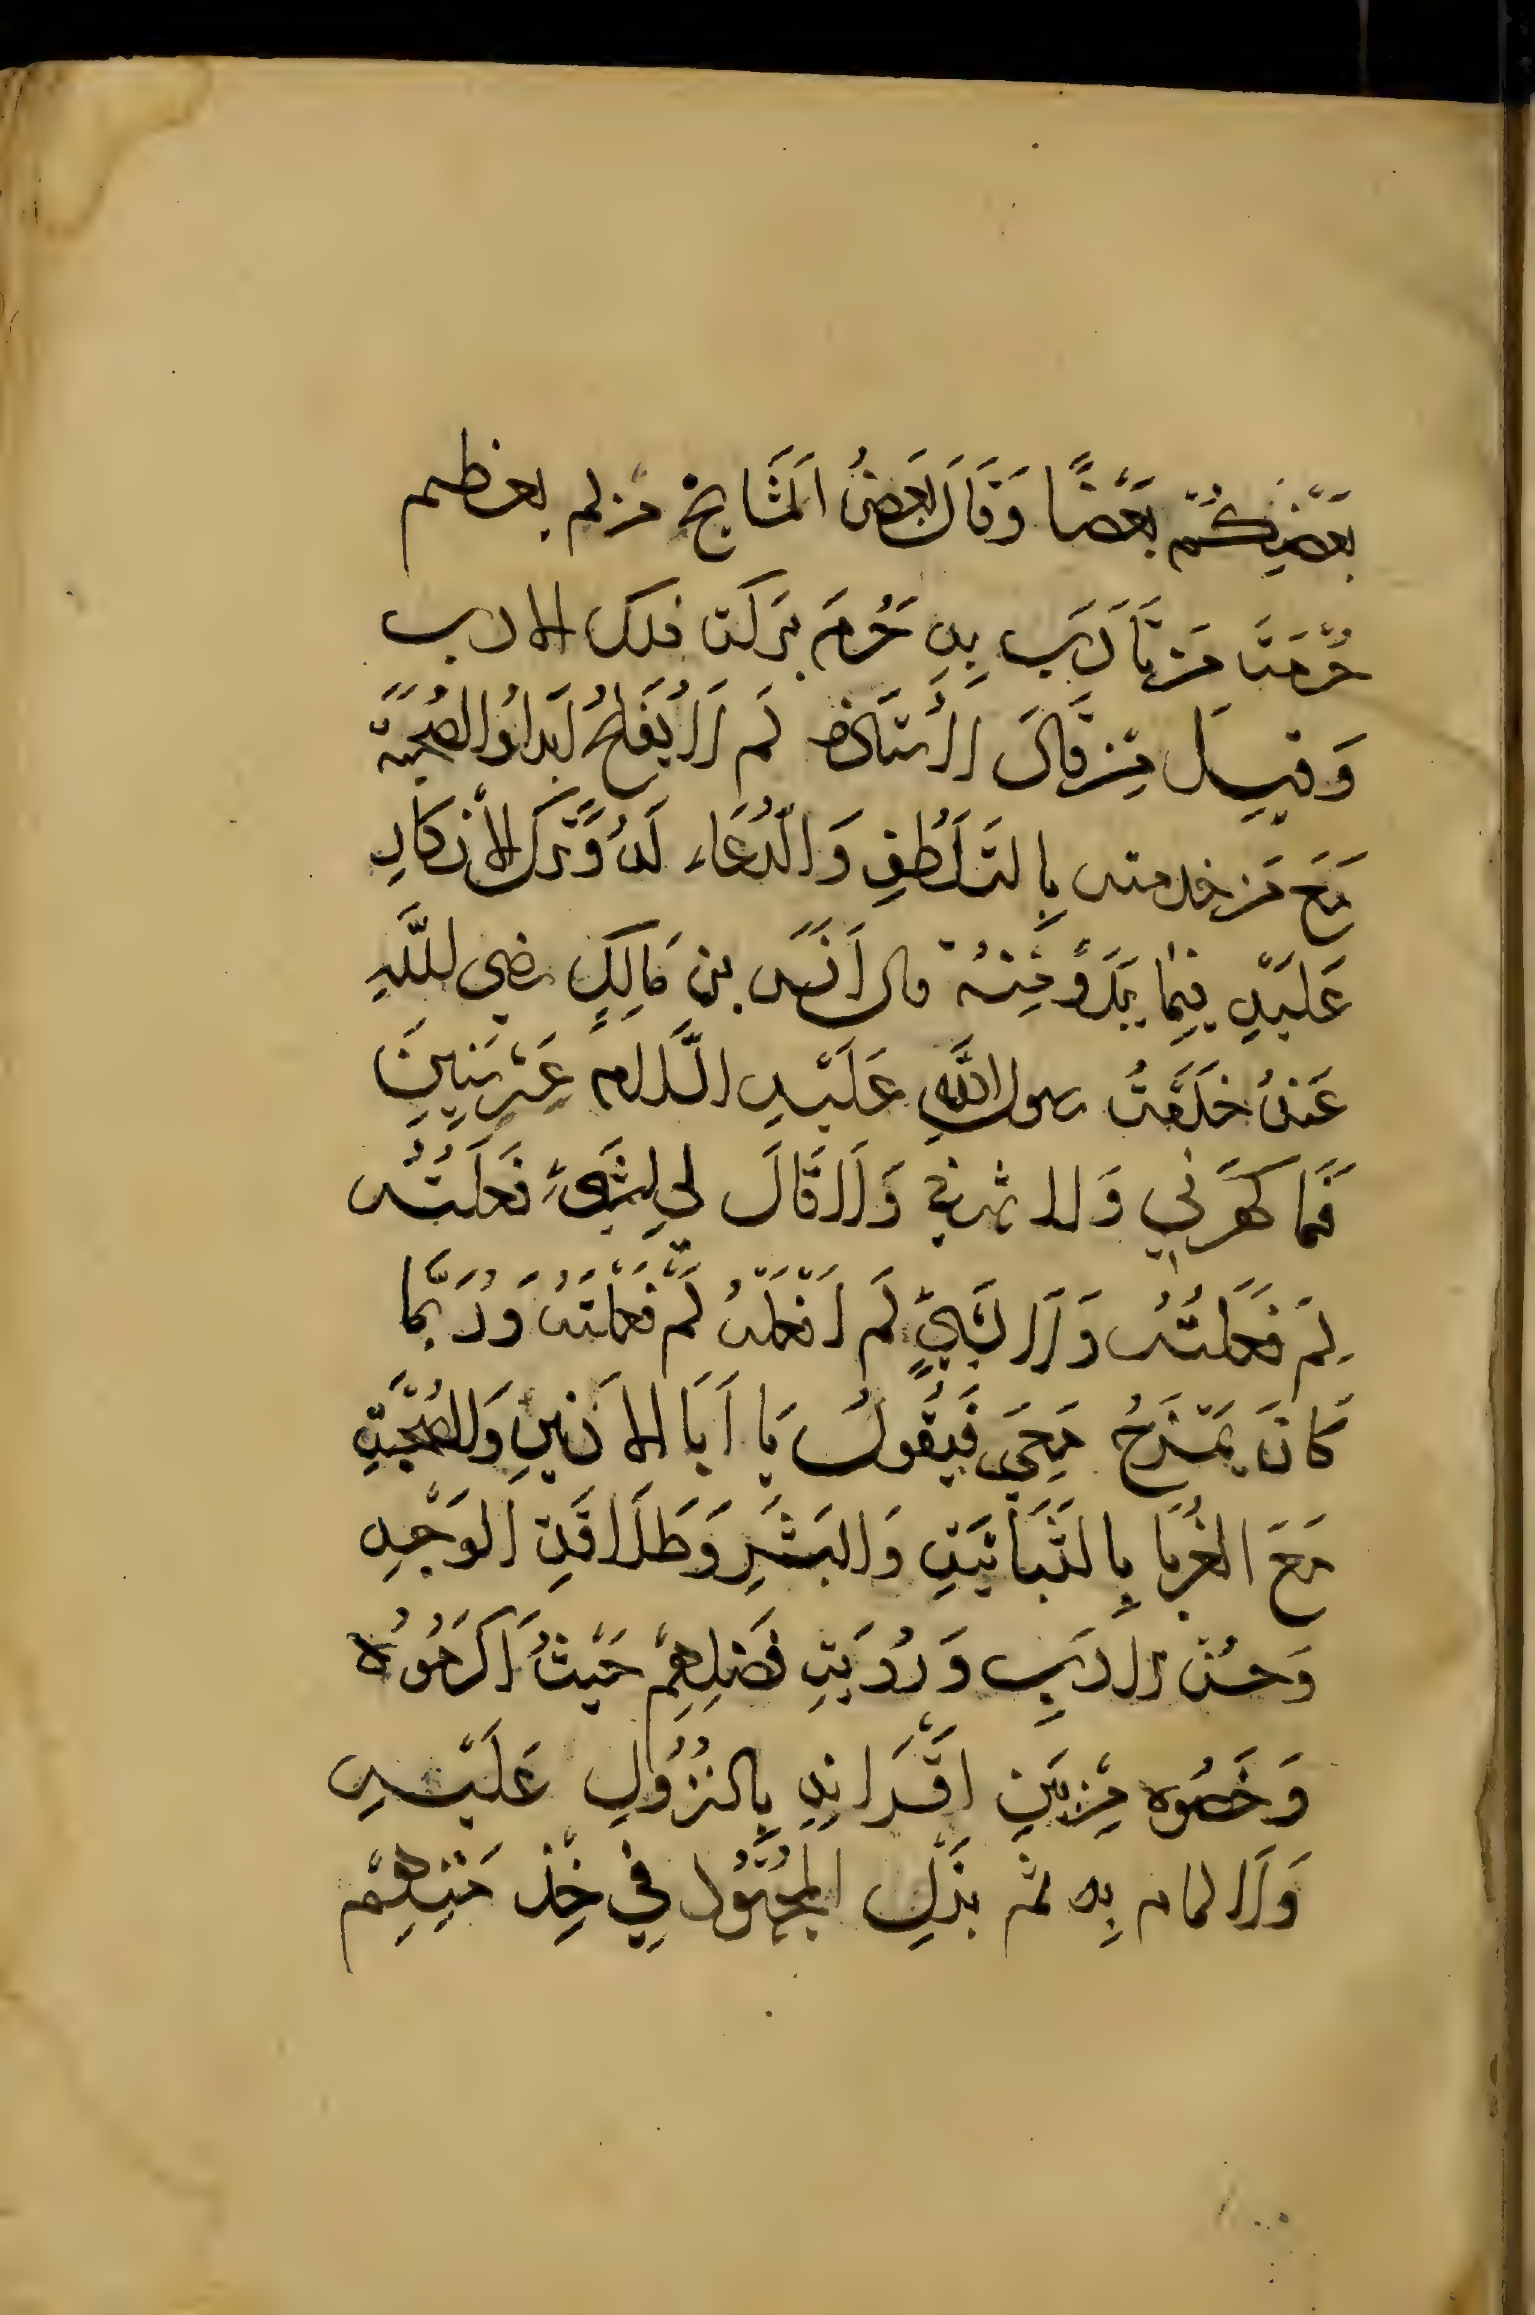 بَعْضِكُمْ بَعْضًا وَقَالَ بَعْضُ الْمَشَايخِ مَن لم يعظم
حُرْمَةَ مَن تَأَدَّبَ بِهِ حُرِمَ بَرَكَة ذلك الادب
وَقِيلَ مَنْ قَالَ لِأُسْتَاذه لِمَ لَا يُفْلِحُ اَبَدًا وَالصُّحْبَة
مَعَ مَن خدمته بِالتَّلَطُّفِ وَالدُّعَاءِ لَهُ وَتَرْكِ الْأنكَارِ
عَلَيْهِ فِيمَا يَبْدُو مِنْهُ قال اَنَس بن مَالِكٍ رضي اللَّه
عَنهُ خَدَمْتُ رسول اللَّهِ عَلَيْهِ السَّلام عَشْرَ سِنِينَ
فَمَا كَهَرَنِي وَلا نهرني وَلَا قَالَ لي لِشَيْءٍ فَعَلْتُه
لِمَ فَعَلْتُه وَلَا لِشَيْءٍ لَم اَفْعَلْهُ لَمْ فَعَلْتَهُ وَرُبَّمَا
كَانَ يَمْزَحُ مَعِيَ فَيَقُولُ يَا اَبَا الاذَنَينِ وَالصُّحْبَةِ
مَعَ الغُرَبَا بِالْبَشَاشَةِ وَالْبِشْرِ وَطَلَاقَةِ الْوَجْهِ
وَحسْن الادَبِ وَرُؤيَةِ فَضْلِهِمْ حَيْثُ اَكرَمُوُه
وَخَصُّوه مِنْ بَيْنِ اَقْرَانِهِ بِالنُّزُولِ عَلَيْهِ
وَالَالمام بِهِ ثم بَذْلِ الْمَجْهُود فِي خِدْمَتِهِمْ